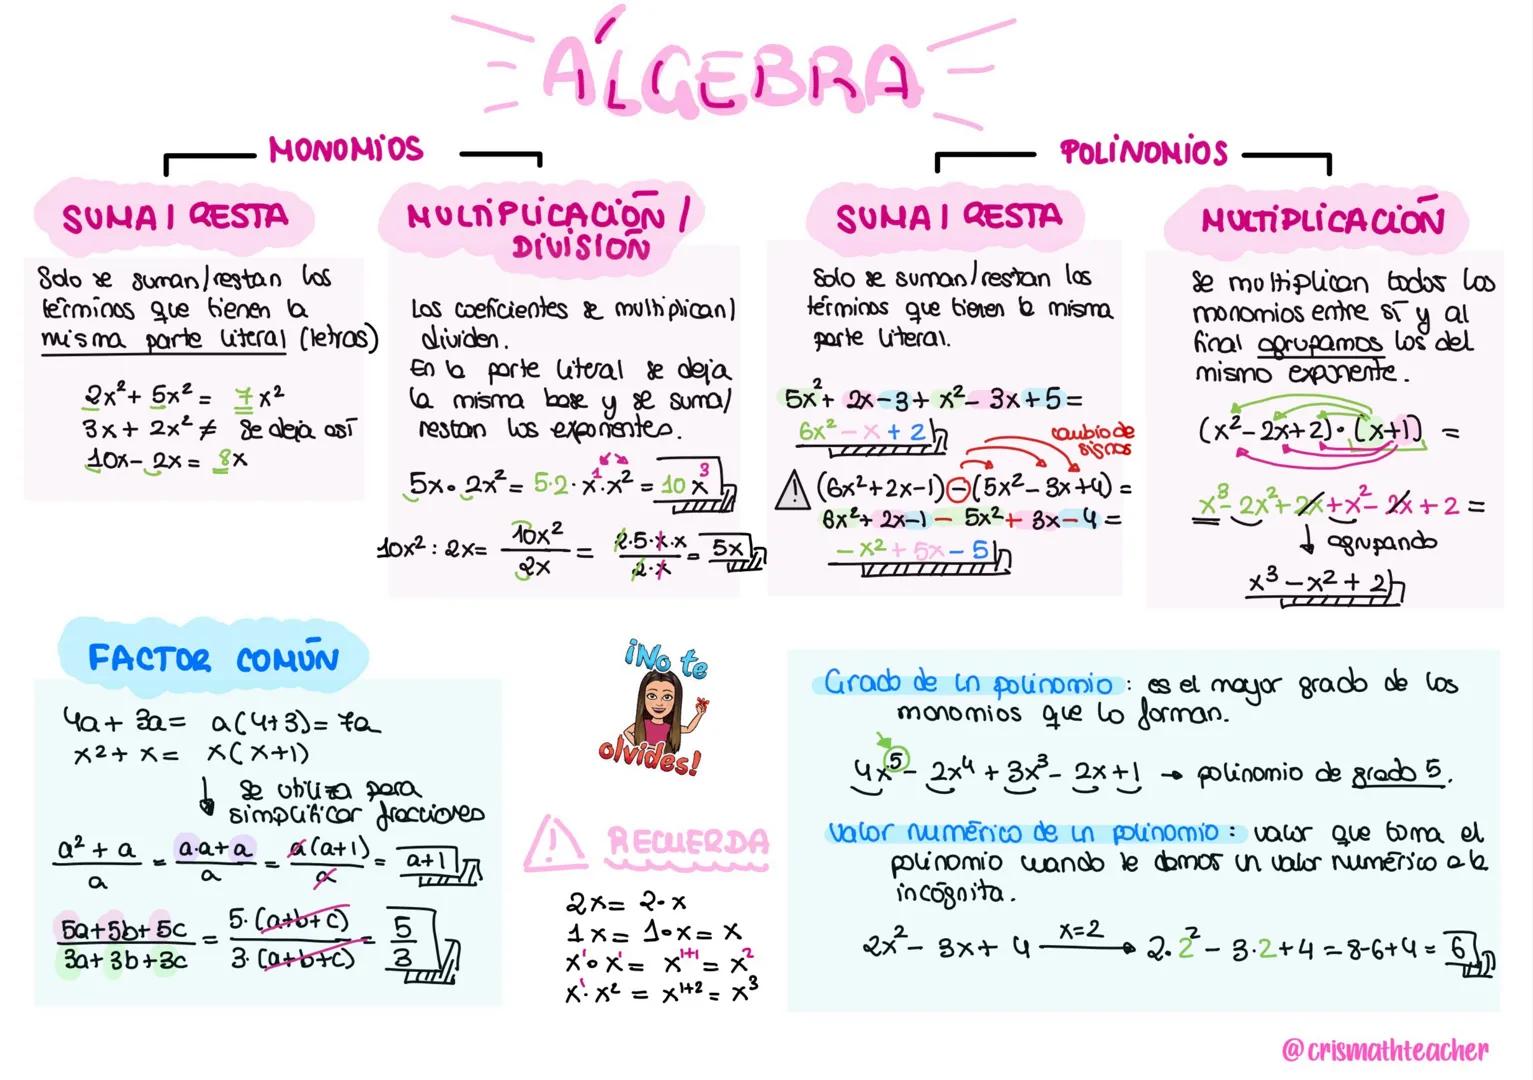 ÁLGEBRA
MONOMIOS
SUMA / RESTA
Solo se suman/restan los
términos que tienen la
misma parte literal (letras)
2x² + 5x² = 7x²
3x + 2x² ≠ Se deja así
10x - 2x = 8x
MULTIPLICACIÓN /
DIVISIÓN
Los coeficientes se multiplican/
dividen.
En la parte literal se deja
la misma base y se suma/
restan los exponentes.
5x · 2x² = 5·2·x¹·x² = 10x³
10x² : 2x = 10x²/2x = 2·5·x·x/2·x = 5x
POLINOMIOS
SUMA / RESTA
Solo se suman/restan los
términos que tienen la misma
parte literal.
5x² + 2x - 3 + x² - 3x + 5 =
6x² - x + 2
cambio de
signos
(6x² + 2x - 1) - (5x² - 3x + 4) =
6x² + 2x - 1 - 5x² + 3x - 4 =
- x² + 5x - 5
MULTIPLICACIÓN
Se multiplican todos los
monomios entre sí y al
final agrupamos los del
mismo exponente.
(x² - 2x + 2) · (x + 1) =
x³ - 2x² + 2x + x² - 2x + 2 =
↓ agrupando
x³ - x² + 2
FACTOR COMÚN
4a + 3a = a(4+3) = 7a
x² + x = x(x+1)
↓ Se utiliza para
simplificar fracciones
a² + a/a = a·a+a/a = a(a+1)/a = a+1
5a+5b+5c/3a+3b+3c = 5·(a+b+c)/3·(a+b+c) = 5/3
¡No te
olvides!
! RECUERDA
2x = 2·x
1x = 1·x = x
x¹·x¹ = x¹⁺¹ = x²
x¹·x² = x¹⁺² = x³
Grado de un polinomio: es el mayor grado de los
monomios que lo forman.
4x⁵ - 2x⁴ + 3x³ - 2x + 1 → polinomio de grado 5.
Valor numérico de un polinomio: valor que toma el
polinomio cuando le damos un valor numérico a la
incógnita.
2x² - 3x + 4 x=2 → 2·2² - 3·2 + 4 = 8-6+4 = 6
@crismathteacher